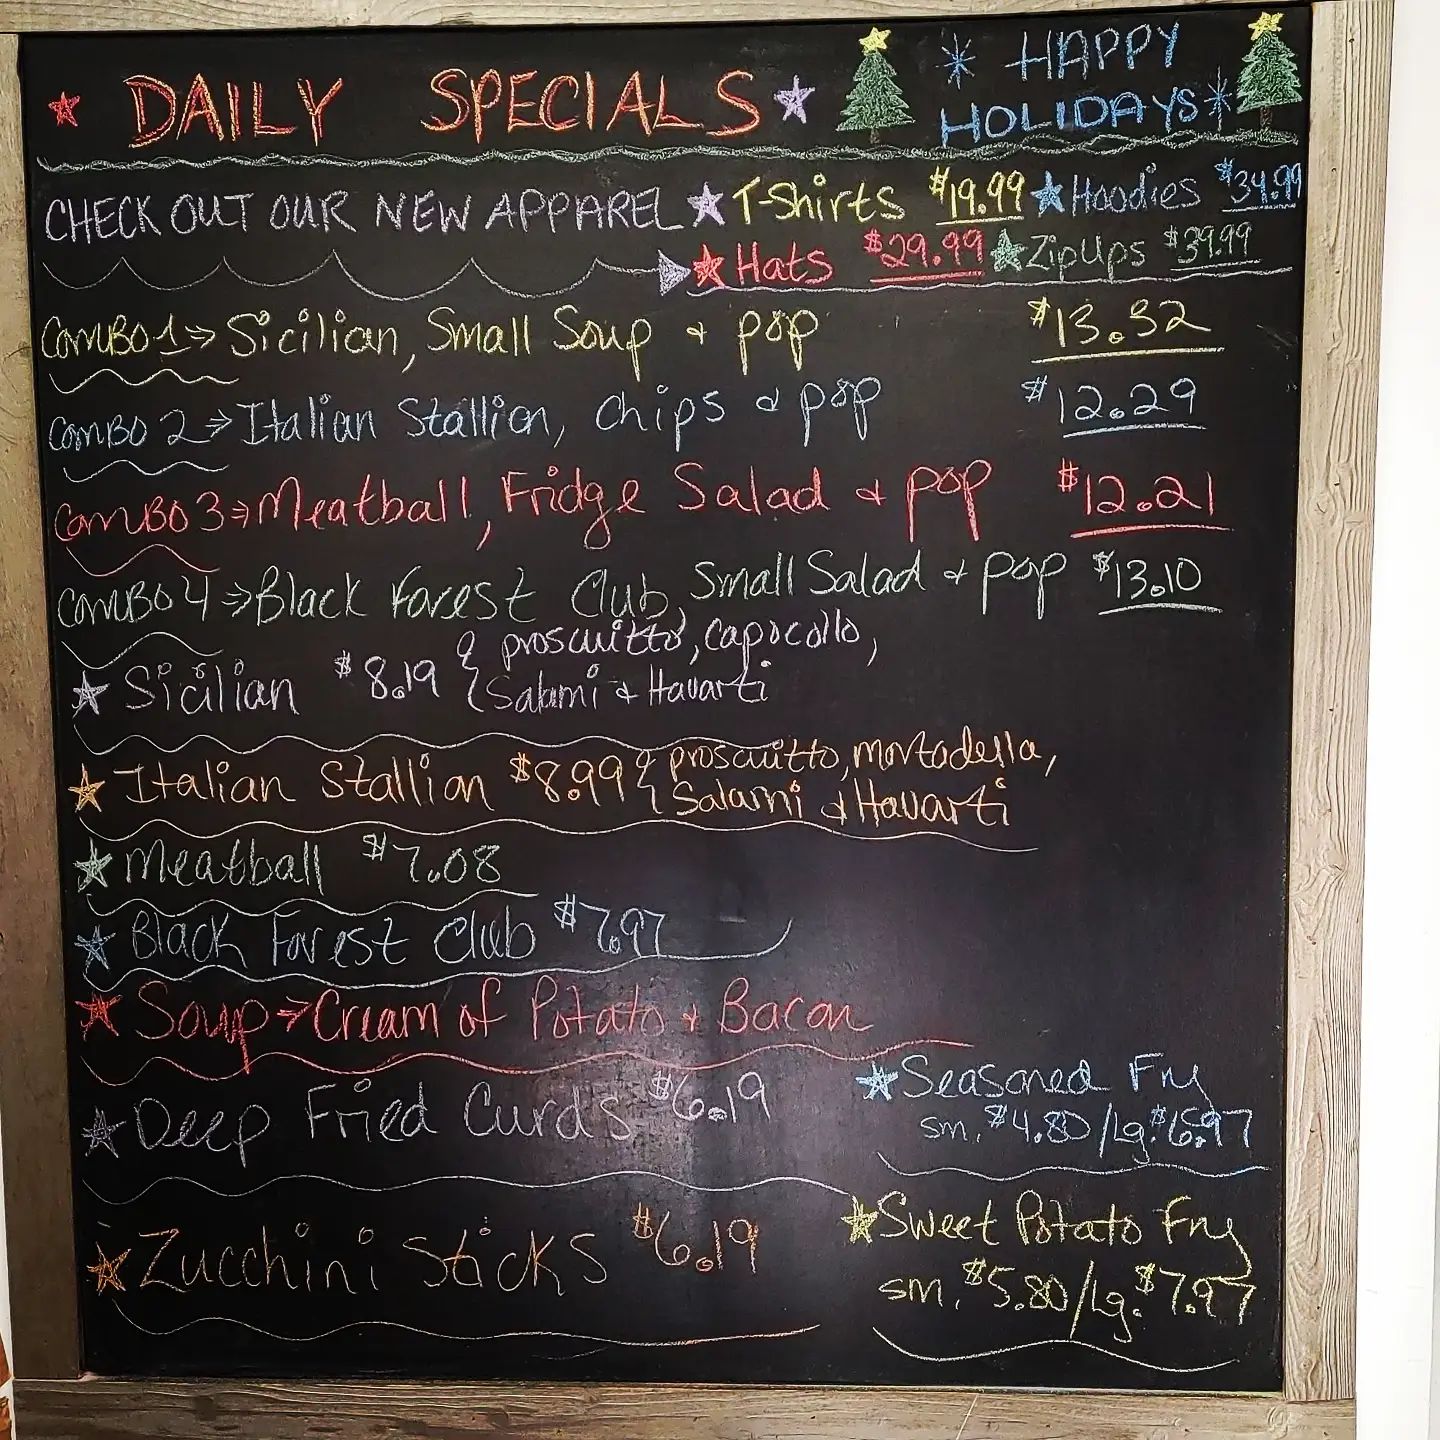 DAILY SPECIALS
HAPPY
HOLIDAYS
CHECK OUT OUR NEW APPAREL T-Shirts $19.99 Hoodies $34.99
Hats $29.99 ZipUps $39.99
COMBO 1 → Sicilian, Small Soup & pop $13.32
COMBO 2 → Italian Stallion, Chips & pop $12.29
COMBO 3 → Meatball, Fridge Salad & pop $12.21
COMBO 4 → Black Forest Club, Small Salad & pop $13.10
Sicilian $8.19 { proscuitto, capocollo,
Salami & Havarti
Italian Stallion $8.99 { proscuitto, mortadella,
Salami & Havarti
Meatball $7.08
Black Forest Club $7.97
Soup → Cream of Potato & Bacon
Deep Fried Curds $6.19
Seasoned Fry
sm. $4.80/Lg. $6.97
Zucchini Sticks $6.19
Sweet Potato Fry
sm. $5.80/Lg. $7.97